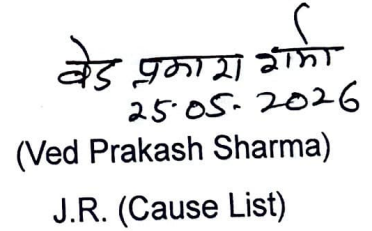 वेद प्रकाश शर्मा
25.05.2026
(Ved Prakash Sharma)
J.R. (Cause List)